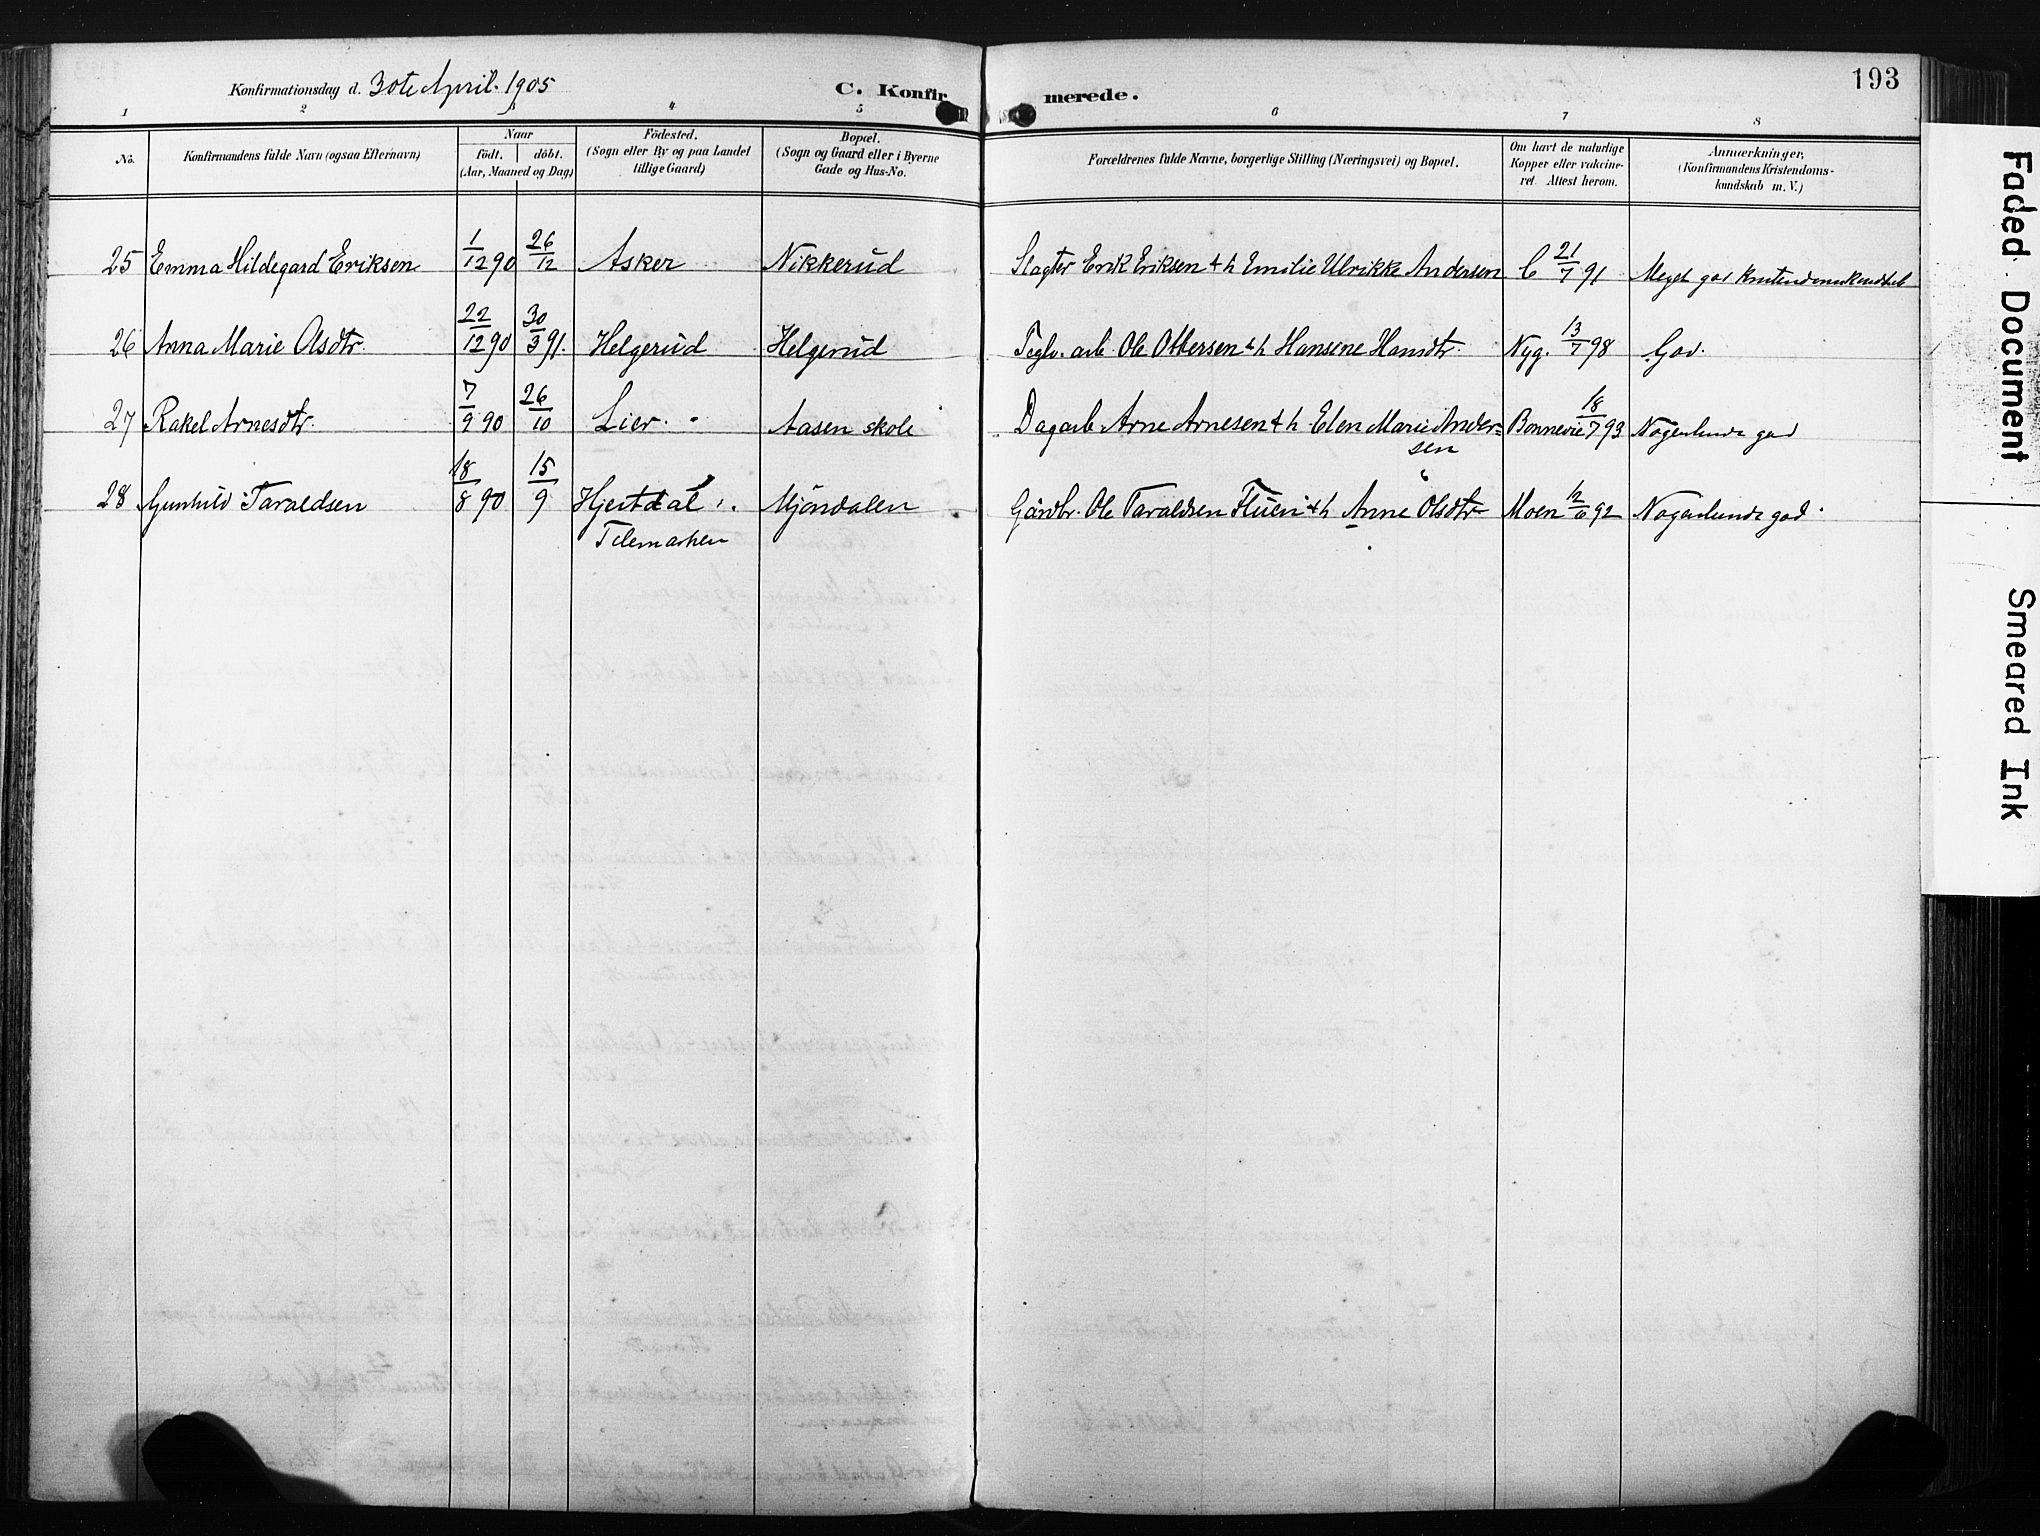 Konfirmationsdag d. 30te April. 1905 C. Konfir merede. 193
1 2 3 4 5 6 7 8
No. Konfirmandens fulde Navn (ogsaa Efternavn)
Naar
födt. döbt.
(Aar, Maaned og Dag)
Födested.
(Sogn eller By og paa Landet
tillige Gaard)
Bopæl.
(Sogn og Gaard eller i Byerne
Gade og Hus-No.
Forældrenes fulde Navne, borgerlige Stilling (Næringsvei) og Bopæl.
Om havt de naturlige
Kopper eller vakcine-
ret. Attest herom.
Anmærkninger,
(Konfirmandens Kristendoms-
kundskab m.V.)
25 Emma Hildegard Eriksen 1/12 90 26/12 Asker Nikkerud Slagter Erik Eriksen & h Emilie Ulrikke Andersen C 21/7 91 Meget god kristendomskundskab
26 Anna Marie Olsdtr. 22/12 90 30/3 91. Helgerud Helgerud Teglv. arb. Ole Ottersen & h Hansene Hansdtr. Nyg. 13/7 98 God.
27 Rakel Arnesdtr. 7/9 90 26/10 Lier. Aasen skole Dagarb. Arne Arnesen & h Elen Marie Ander=
sen Bonnevie 18/7 93 Nogenlunde god
28 Gunhild Taraldsen 18/8 90 15/9 Hjertdal i. Mjöndalen Gårdbr. Ole Taraldsen & h Anne Olsdtr Moen 12/6 92 Nogenlunde god.
Telemarken
Faded Document
Smeared Ink